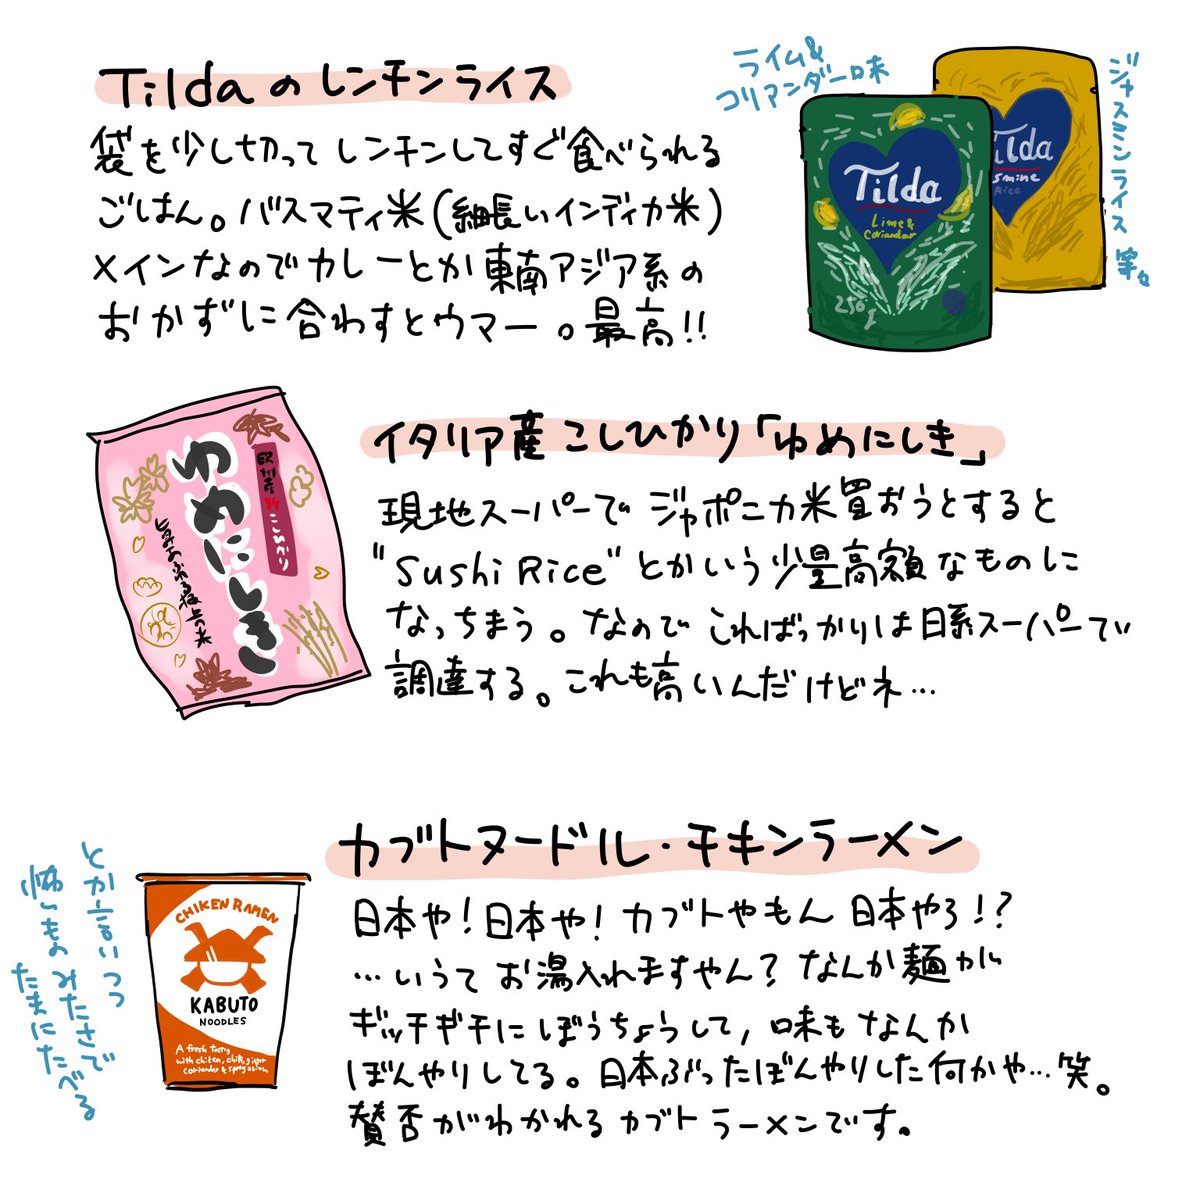 Tildaのレンチンライス
袋を少し切ってレンチンしてすぐ食べられる
ごはん。バスマティ米(細長いインディカ米)
メインなのでカレーとか東南アジア系の
おかずに合わすとウマー。最高!!
ライム&
コリアンダー味
ジャスミンライス 等々
Tilda
Lime &
Coriander
250g
Tilda
smine
Rice
イタリア産こしひかり「ゆめにしき」
現地スーパーでジャポニカ米買おうとすると
"Sushi Rice"とかいう少量高額なものに
なっちまう。なのでこればっかりは日系スーパーで
調達する。これも高いんだけどネ…
ゆめにしき
欧州産 新 こしひかり
カブトヌードル・チキンラーメン
日本や!日本や!カブトやもん日本やろ!?
…いうてお湯入れますやん?なんか麺が
ギッチギチにぼうちょうして,味もなんか
ぼんやりしてる。日本ぶったぼんやりした何かや…笑。
賛否がわかれるカブトラーメンです。
とか言いつつ
怖いものみたさで
たまにたべる
CHIKEN RAMEN
KABUTO
NOODLES
A fresh tasty
with chiken, chilli, ginger
coriander & spring onion